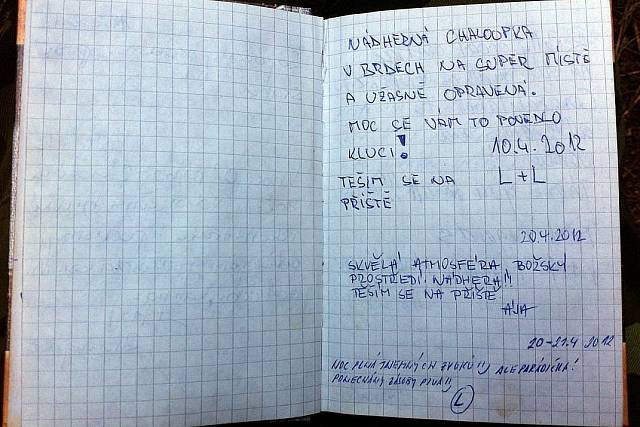 NÁDHERNÁ CHALOUPKA
V BRDECH NA SUPER MÍSTĚ
A UŽASNĚ OPRAVENÁ.
MOC SE VÁM TO POVEDLO
KLUCI! 10.4.2012
TEŠÍM SE NA L+L
PŘÍŠTĚ
20.4.2012
SKVĚLÁ ATMOSFÉRA, BOŽSKÝ
PROSTŘEDÍ. NÁDHERA!!
TĚŠÍM SE NA PŘÍŠTĚ
AJA
20-21.4 2012
NOC PLNÁ TAJEMNÝCH ZVUKŮ!!, ALE PARÁDIČKA!
PONECHÁNY ZÁSOBY PIVA!!
L